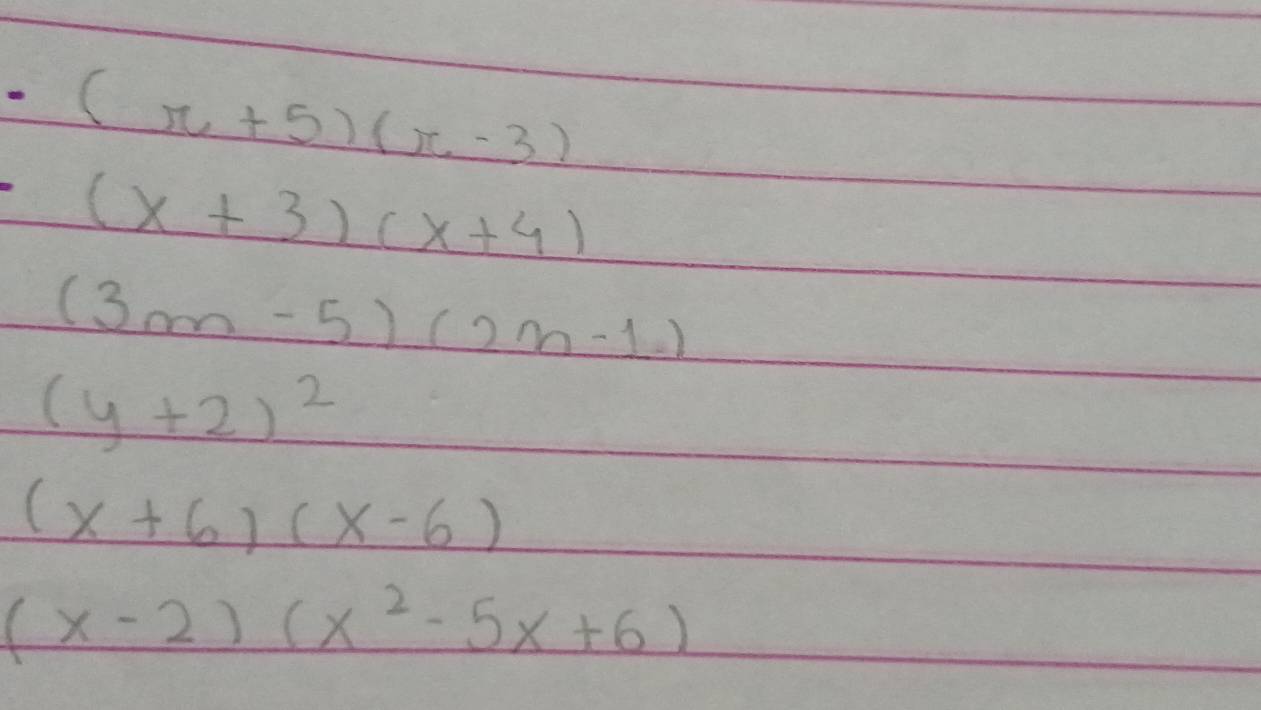 - (x+5)(x-3)
- (x+3)(x+4)
(3m-5)(2m-1)
(y+2)²
(x+6)(x-6)
(x-2)(x²-5x+6)